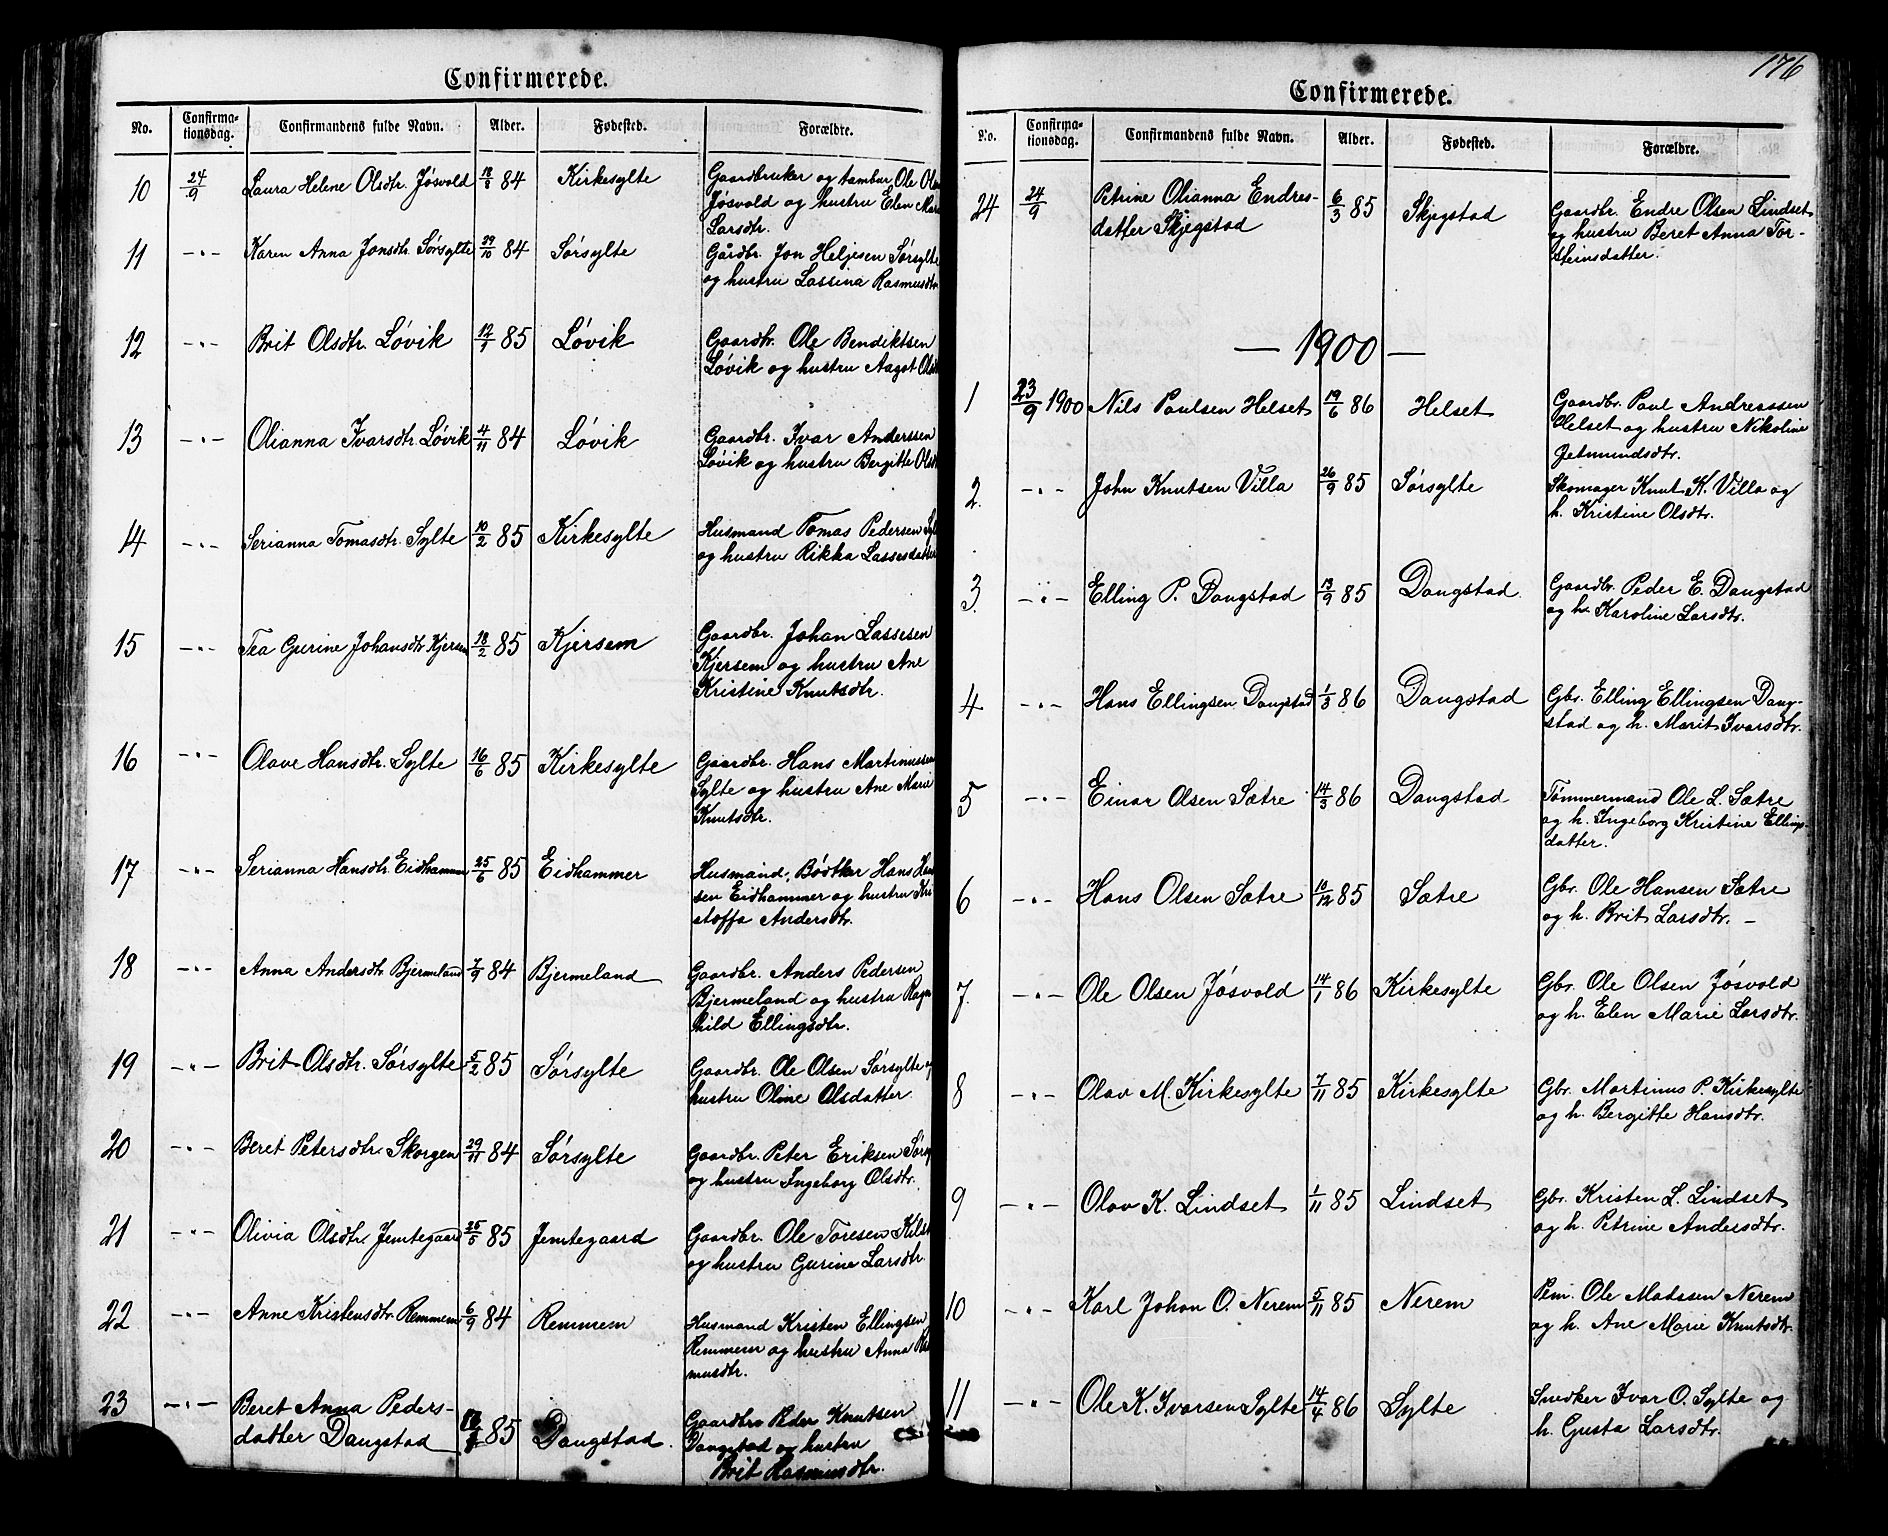 Confirmerede.
No. Confirma-tionsdag. Confirmandens fulde Navn. Alder. Fødested. Forældre.
10 24/9 Laura Helene Olsdtr. Jøsvold 18/8 84 Kirkesylte Gaardbruker og tambur Ole
Jøsvold og hustru Elen
Larsdtr.
11 -"- Karen Anna Jonsdtr. Sørsylte 29/10 84 Sørsylte Gårdbr. Jon Heljesen Sørsylte
og hustru Lassina Rasmusdtr.
12 -"- Brit Olsdtr. Løvik 85 Løvik Gaardbr. Ole Bendiktsen
Løvik og hustru Aagot
13 -"- Olianna Ivarsdtr. Løvik 4/11 84 Løvik Gaardbr. Ivar Anderssen
Løvik og hustru Bergitte
14 -"- Serianna Tomasdtr. Sylte 10/2 85 Kirkesylte Husmand Tomas Pedersen
og hustru Rikka Lassesdatter
15 -"- Tea Gurine Johansdtr Kjersem 18/2 85 Kjersem Gaardbr. Johan Lassesen
Kjersem og hustru Ane
Kristine Knutsdtr.
16 -"- Olave Hansdtr. Sylte 16/6 85 Kirkesylte Gaardbr. Hans Martinussen
Sylte og hustru Ane Marie
Knutsdtr.
17 -"- Serianna Hansdtr. Eidhammer 25/6 85 Eidhammer Husmand, Bødker Hans Han
sen Eidhammer og hustru Kri
stoffa Andersdtr.
18 -"- Anna Andersdtr Bjermeland 7/9 84 Bjermeland Gaardbr. Anders Pedersen
Bjermeland og hustru Ragn
hild Ellingsdtr.
19 -"- Brit Olsdtr. Sørsylte 5/2 85 Sørsylte Gaardbr. Ole Olsen Sørsylte og
hustru Oline Olsdatter
20 -"- Beret Petersdtr. Skorgen 29/11 84 Sørsylte Gaardbr. Peter Eriksen
og hustru Ingeborg Olsdtr.
21 -"- Olivia Olsdtr. Jemtegaard 25/5 85 Jemtegaard Gaardbr. Ole Toresen
og hustru Gurine Larsdtr.
22 -"- Anne Kristensdtr. Remmem 6/9 84 Remmem Husmand Kristen Ellingsen
Remmem og hustru Anna Ras
musdtr.
23 -"- Beret Anna Peders-
datter Dangstad 85 Dangstad. Gaardbr Peder Knutsen
Dangstad og hustru
Brit Rasmusdtr.
176
Confirmerede.
No. Confirma-tionsdag. Confirmandens fulde Navn. Alder. Fødested. Forældre.
24 24/9 Petrine Olianna Endres-
datter Skjegstad 6/3 85 Skjegstad Gaardbr. Endre Olsen Lindset
og hustru Beret Anna Tor-
steinsdatter.
— 1900 —
1 23/9 1900 Nils Paulsen Helset 19/6 86 Helset Gaardbr. Paul Andreassen
Helset og hustru Nikoline
Getmundsdtr.
2. -"- John Knutsen Villa 26/9 85 Sørsylte Skomager Knut K. Villa og
h. Kristine Olsdtr.
3. -"- Elling P. Dangstad 13/9 85 Dangstad. Gaardbr. Peder E. Dangstad
og h. Karoline Larsdtr.
4 -"- Hans Ellingsen Dangstad 1/3 86 Dangstad Gbr. Elling Ellingsen Dang-
stad og h. Marit Ivarsdtr.
5 -"- Einar Olsen Sætre 14/3 86 Dangstad Tømmermand Ole L. Sætre
og h. Ingeborg Kristine Ellings-
datter.
6 -"- Hans Olsen Sætre 10/12 85 Sætre Gbr. Ole Hansen Sætre
og h. Brit Larsdtr. —
7. -"- Ole Olsen Jøsvold 14/1 86 Kirkesylte Gbr. Ole Olsen Jøsvold
og h. Elen Marie Larsdtr.
8 -"- Olav M. Kirkesylte 7/11 85 Kirkesylte Gbr. Martinus P. Kirkesylte
og h. Bergitte Hansdtr.
9 -"- Olav K. Lindset 1/11 85 Lindset Gbr. Kristen L. Lindset
og h. Petrine Andersdtr.
10 -"- Karl Johan O. Nerem 5/11 85 Nerem Pem. Ole Madssen Nerem
og h. Ane Marie Knutsdtr.
11 -"- Ole K. Ivarsen Sylte 14/4 86 Sylte Snedker Ivar O. Sylte og
h. Gusta Larsdtr.